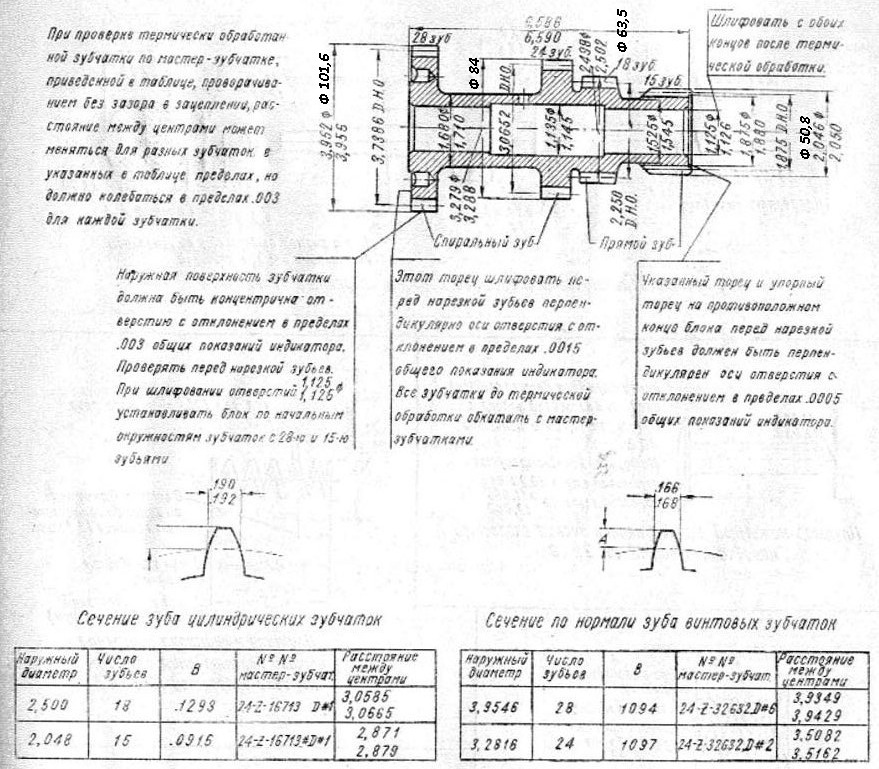 При проверке термически обработан-
ной зубчатки по мастер-зубчатке,
приведенной в таблице, проворачива-
нием без зазора в зацеплении, рас-
стояние между центрами может
меняться для разных зубчаток в
указанных в таблице пределах, но
должно колебаться в пределах .003
для каждой зубчатки.
6,586
6,590
28 зуб.
24 зуб.
18 зуб.
15 зуб.
Ф 101,6
3,952 Ф
3,956
3,7386 Д.Н.О.
Ф 84
Д.Н.О.
3,0662
1,680 Ф
1,710
3,279 Ф
3,288
1,135 Ф
1,145
2,498 Ф
2,502
Ф 63,5
2,250
Д.Н.О.
1,525 Ф
1,545
1,125 Ф
1,126
1,875 Ф
1,880
1,875 Д.Н.О.
Ф 50,8
2,046 Ф
2,050
Шлифовать с обоих
концов после терми-
ческой обработки.
Спиральный зуб
Прямой зуб
Наружная поверхность зубчатки
должна быть концентрична от-
верстию с отклонением в пределах
.003 общих показаний индикатора.
Проверять перед нарезкой зубьев.
При шлифовании отверстий 1,125 Ф
1,125
устанавливать блок по начальным
окружностям зубчаток с 28-ю и 15-ю
зубьями.
Этот торец шлифовать пе-
ред нарезкой зубьев перпен-
дикулярно оси отверстия с от-
клонением в пределах .0015
общего показания индикатора.
Все зубчатки до термической
обработки обкатить с мастер-
зубчатками.
Указанный торец и упорный
торец на противоположном
конце блока перед нарезкой
зубьев должен быть перпен-
дикулярен оси отверстия с
отклонением в пределах .0005
общих показаний индикатора.
.190
.192
.166
.168
A
Сечение зуба цилиндрических зубчаток
Наружный диаметр Число зубьев В №№ мастер-зубчат. Расстояние между центрами
2,500 18 .1293 24-Z-16713 D#1 3,0585
3,0665
2,048 15 .0915 24-Z-16713#D#1 2,871
2,879
Сечение по нормали зуба винтовых зубчаток
Наружный диаметр Число зубьев В №№ мастер-зубчат. Расстояние между центрами
3,9546 28 1094 24-Z-32632.D#6 3,9349
3,9429
3,2816 24 1097 24-Z-32632.D#2 3,5082
3,5162